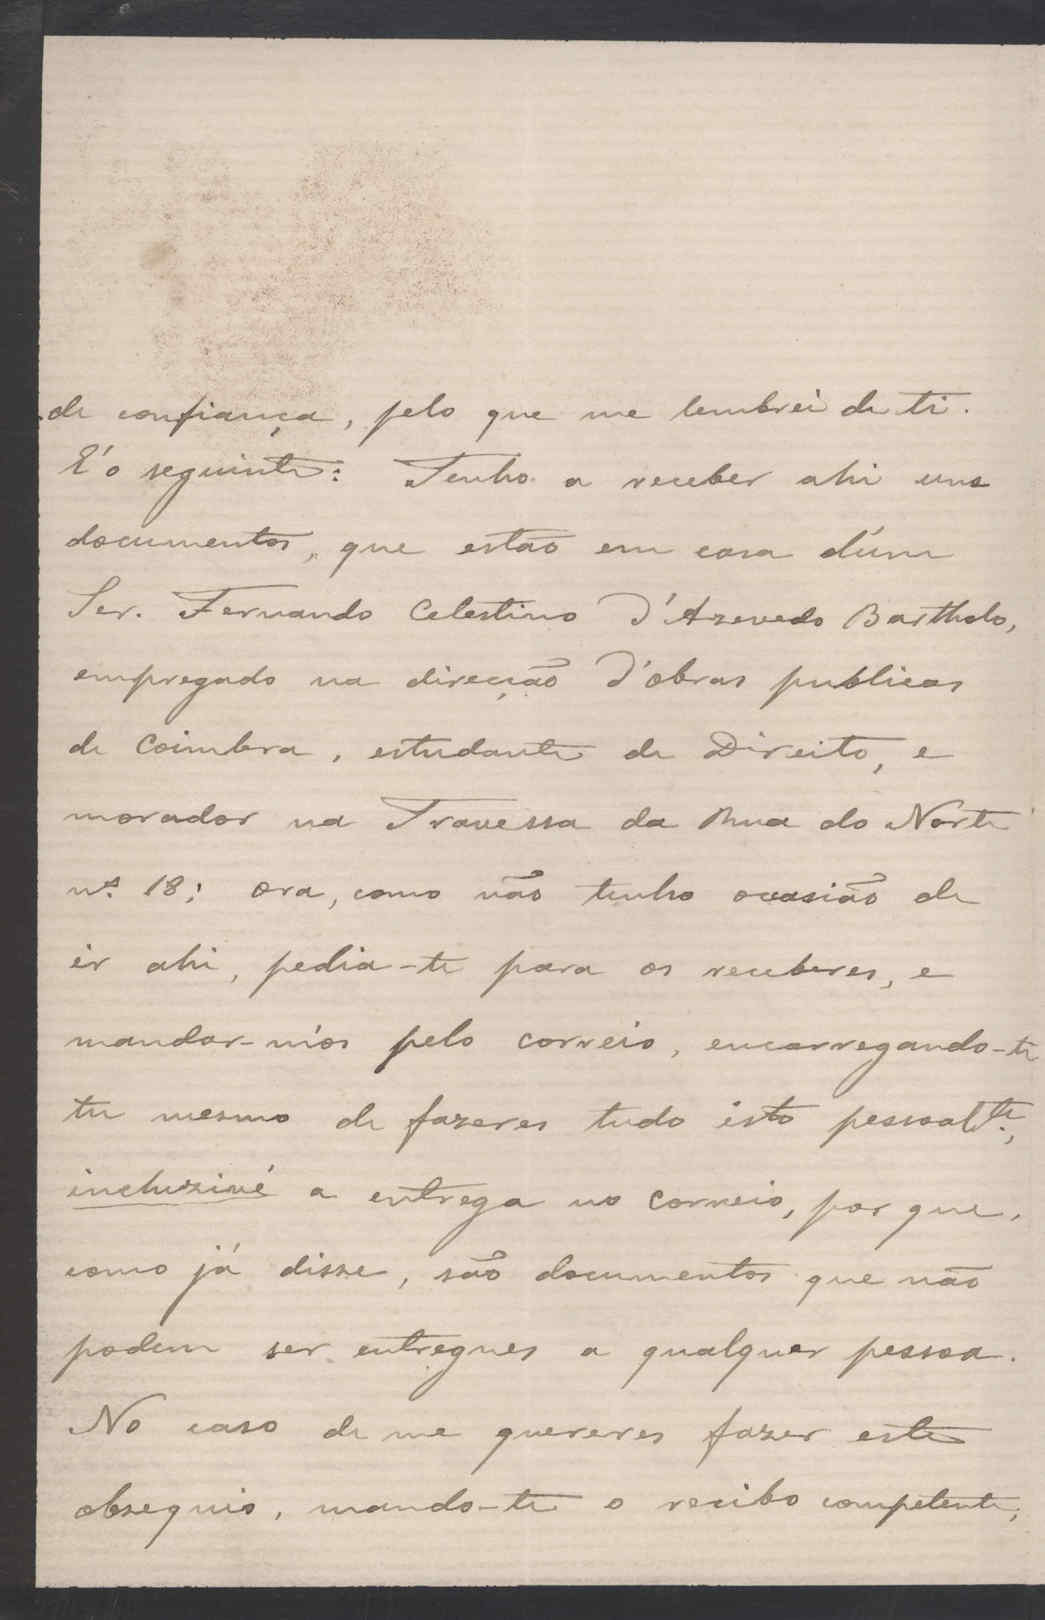 de confiança, pelo que me lembrei de ti.
É o seguinte: Tenho a receber ahi uns
documentos, que estão em casa d'um
Ser. Fernando Celestino d'Azevedo Bartholo,
empregado na direcção d'obras publicas
de Coimbra, estudante de Direito, e
morador na Travessa da Rua do Norte
nº 18; ora, como não tenho occasião de
ir ahi, pedia-te para os receberes, e
mandar-m'os pelo correio, encarregando-te
tu mesmo de fazeres tudo isto pessoalte.,
inclusivé a entrega no correio, por que,
como já disse, são documentos que não
podem ser entregues a qualquer pessoa.
No caso de me quereres fazer este
obsequio, mando-te o recibo competente,